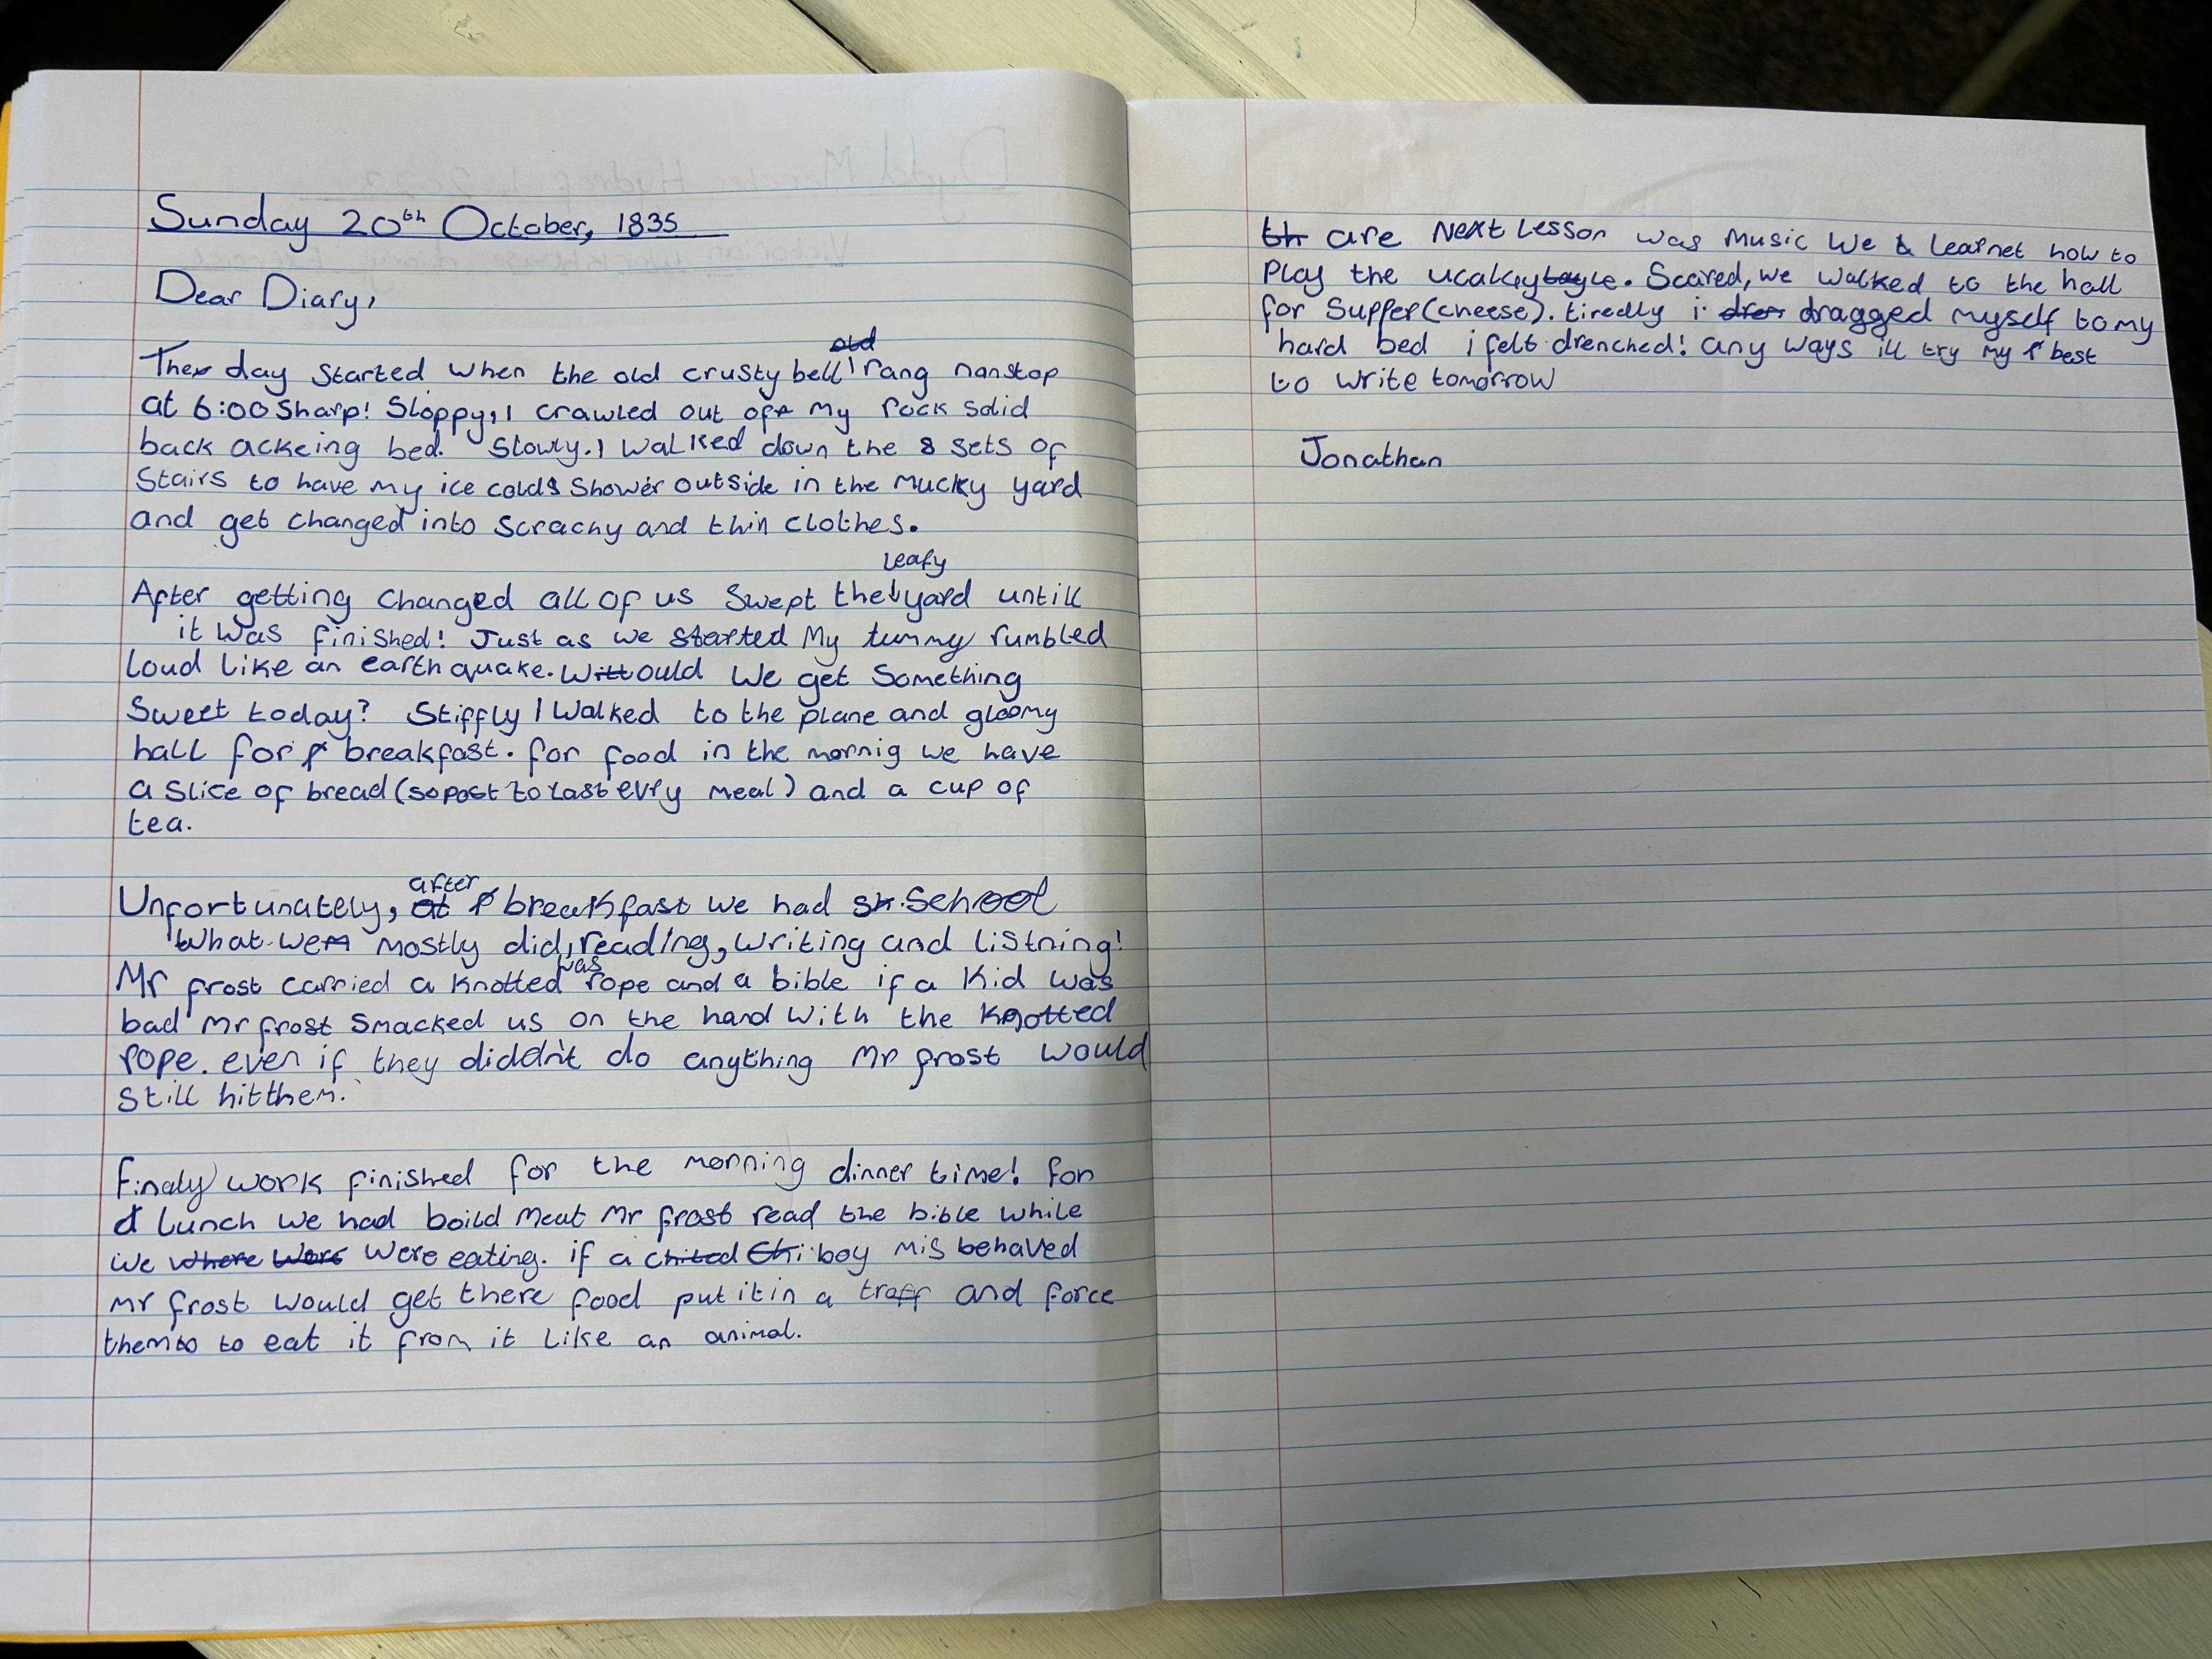 Sunday 20th October, 1835
Dear Diary,
old
The day started when the old crusty bell rang nonstop
at 6:00 sharp! Sloppy, I crawled out off my rock solid
back ackeing bed. Slowly. I walked down the 8 sets of
stairs to have my ice cold shower outside in the mucky yard
and get changed into scrachy and thin clothes.
leafy
After getting changed all of us swept the yard untill
it was finished! Just as we started my tummy rumbled
loud like an earthquake. Would we get something
sweet today? Stiffly I walked to the plane and gloomy
hall for breakfast. for food in the mornig we have
a slice of bread (sopost to last evry meal) and a cup of
tea.
after
Unfortunately, at breakfast we had sk. School
What we mostly did, reading, writing and listning!
was
Mr frost carried a knotted rope and a bible if a kid was
bad Mr frost smacked us on the hand with the knotted
rope. even if they diddn't do anything Mr frost would
still hit them.
Finaly work finished for the morning dinner time! for
lunch we had boild meat Mr frost read the bible while
we where were were eating. if a boy mis behaved
mr frost would get there food put it in a troff and force
them to to eat it from it like an animal.
th are Next lesson was music We learnet how to
Play the . Scared, we walked to the hall
for supper (cheese). tiredly i dragged myself to my
hard bed i felt drenched! any ways ill try my best
to write tomorrow
Jonathan